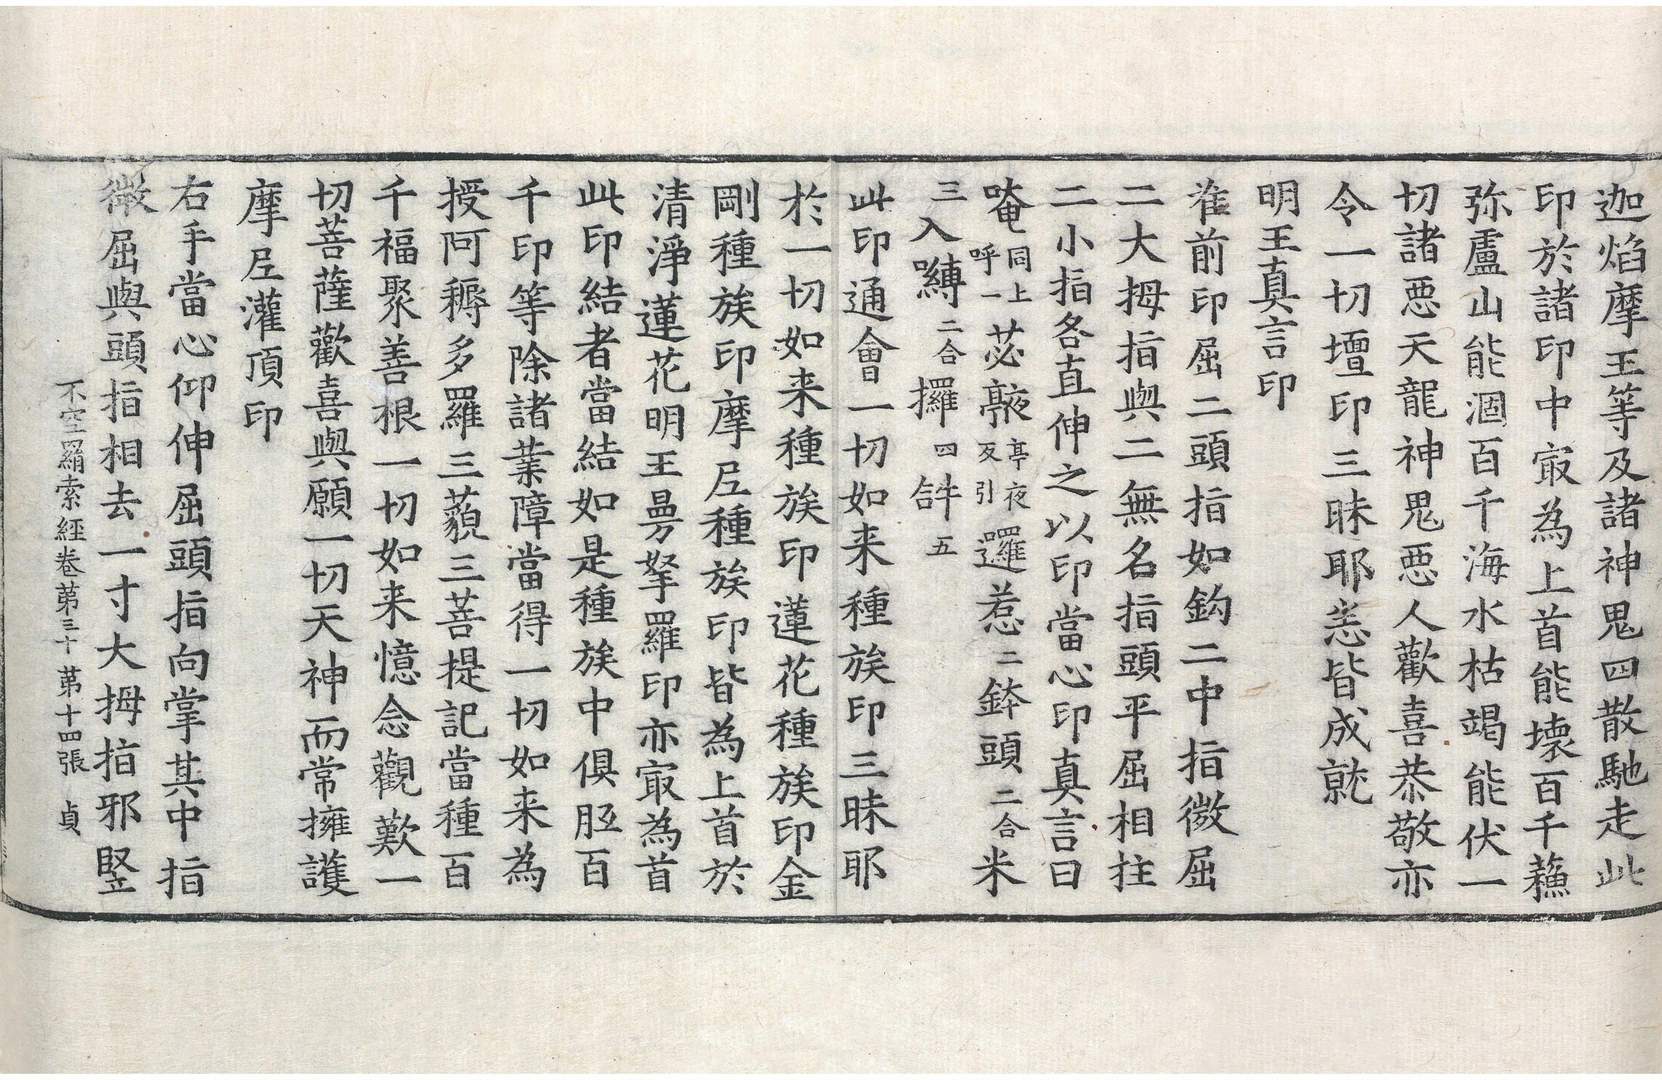 迦焰摩王等及諸神鬼四散馳走此
印於諸印中㝡為上首能壊百千蘓
弥盧山能涸百千海水枯竭能伏一
切諸惡天龍神鬼惡人歡喜恭敬亦
令一切壇印三昧耶悉皆成就
明王真言印
准前印屈二頭指如鈎二中指微屈
二大拇指與二無名指頭平屈相拄
二小指各直伸之以印當心印真言曰
唵同上呼一苾㰠亭夜反引邏惹二鉢頭二合米
三入嚩二合攞四𤙖五
此印通會一切如来種族印三昧耶
於一切如来種族印蓮花種族印金
剛種族印摩尼種族印皆為上首於
清淨蓮花明王曼拏羅印亦㝡為首
此印結者當結如是種族中俱胝百
千印等除諸業障當得一切如来為
授阿耨多羅三藐三菩提記當種百
千福聚善根一切如来憶念觀歎一
切菩薩歡喜與願一切天神而常擁護
摩尼灌頂印
右手當心仰伸屈頭指向掌其中指
微屈與頭指相去一寸大拇指邪竪
不空羂索經卷第三十 第十四張 貞